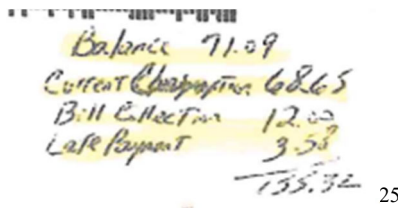 Balance 71.09
Current 68.65
Bill Collection 12.00
Late Payment 3.58
155.32
25